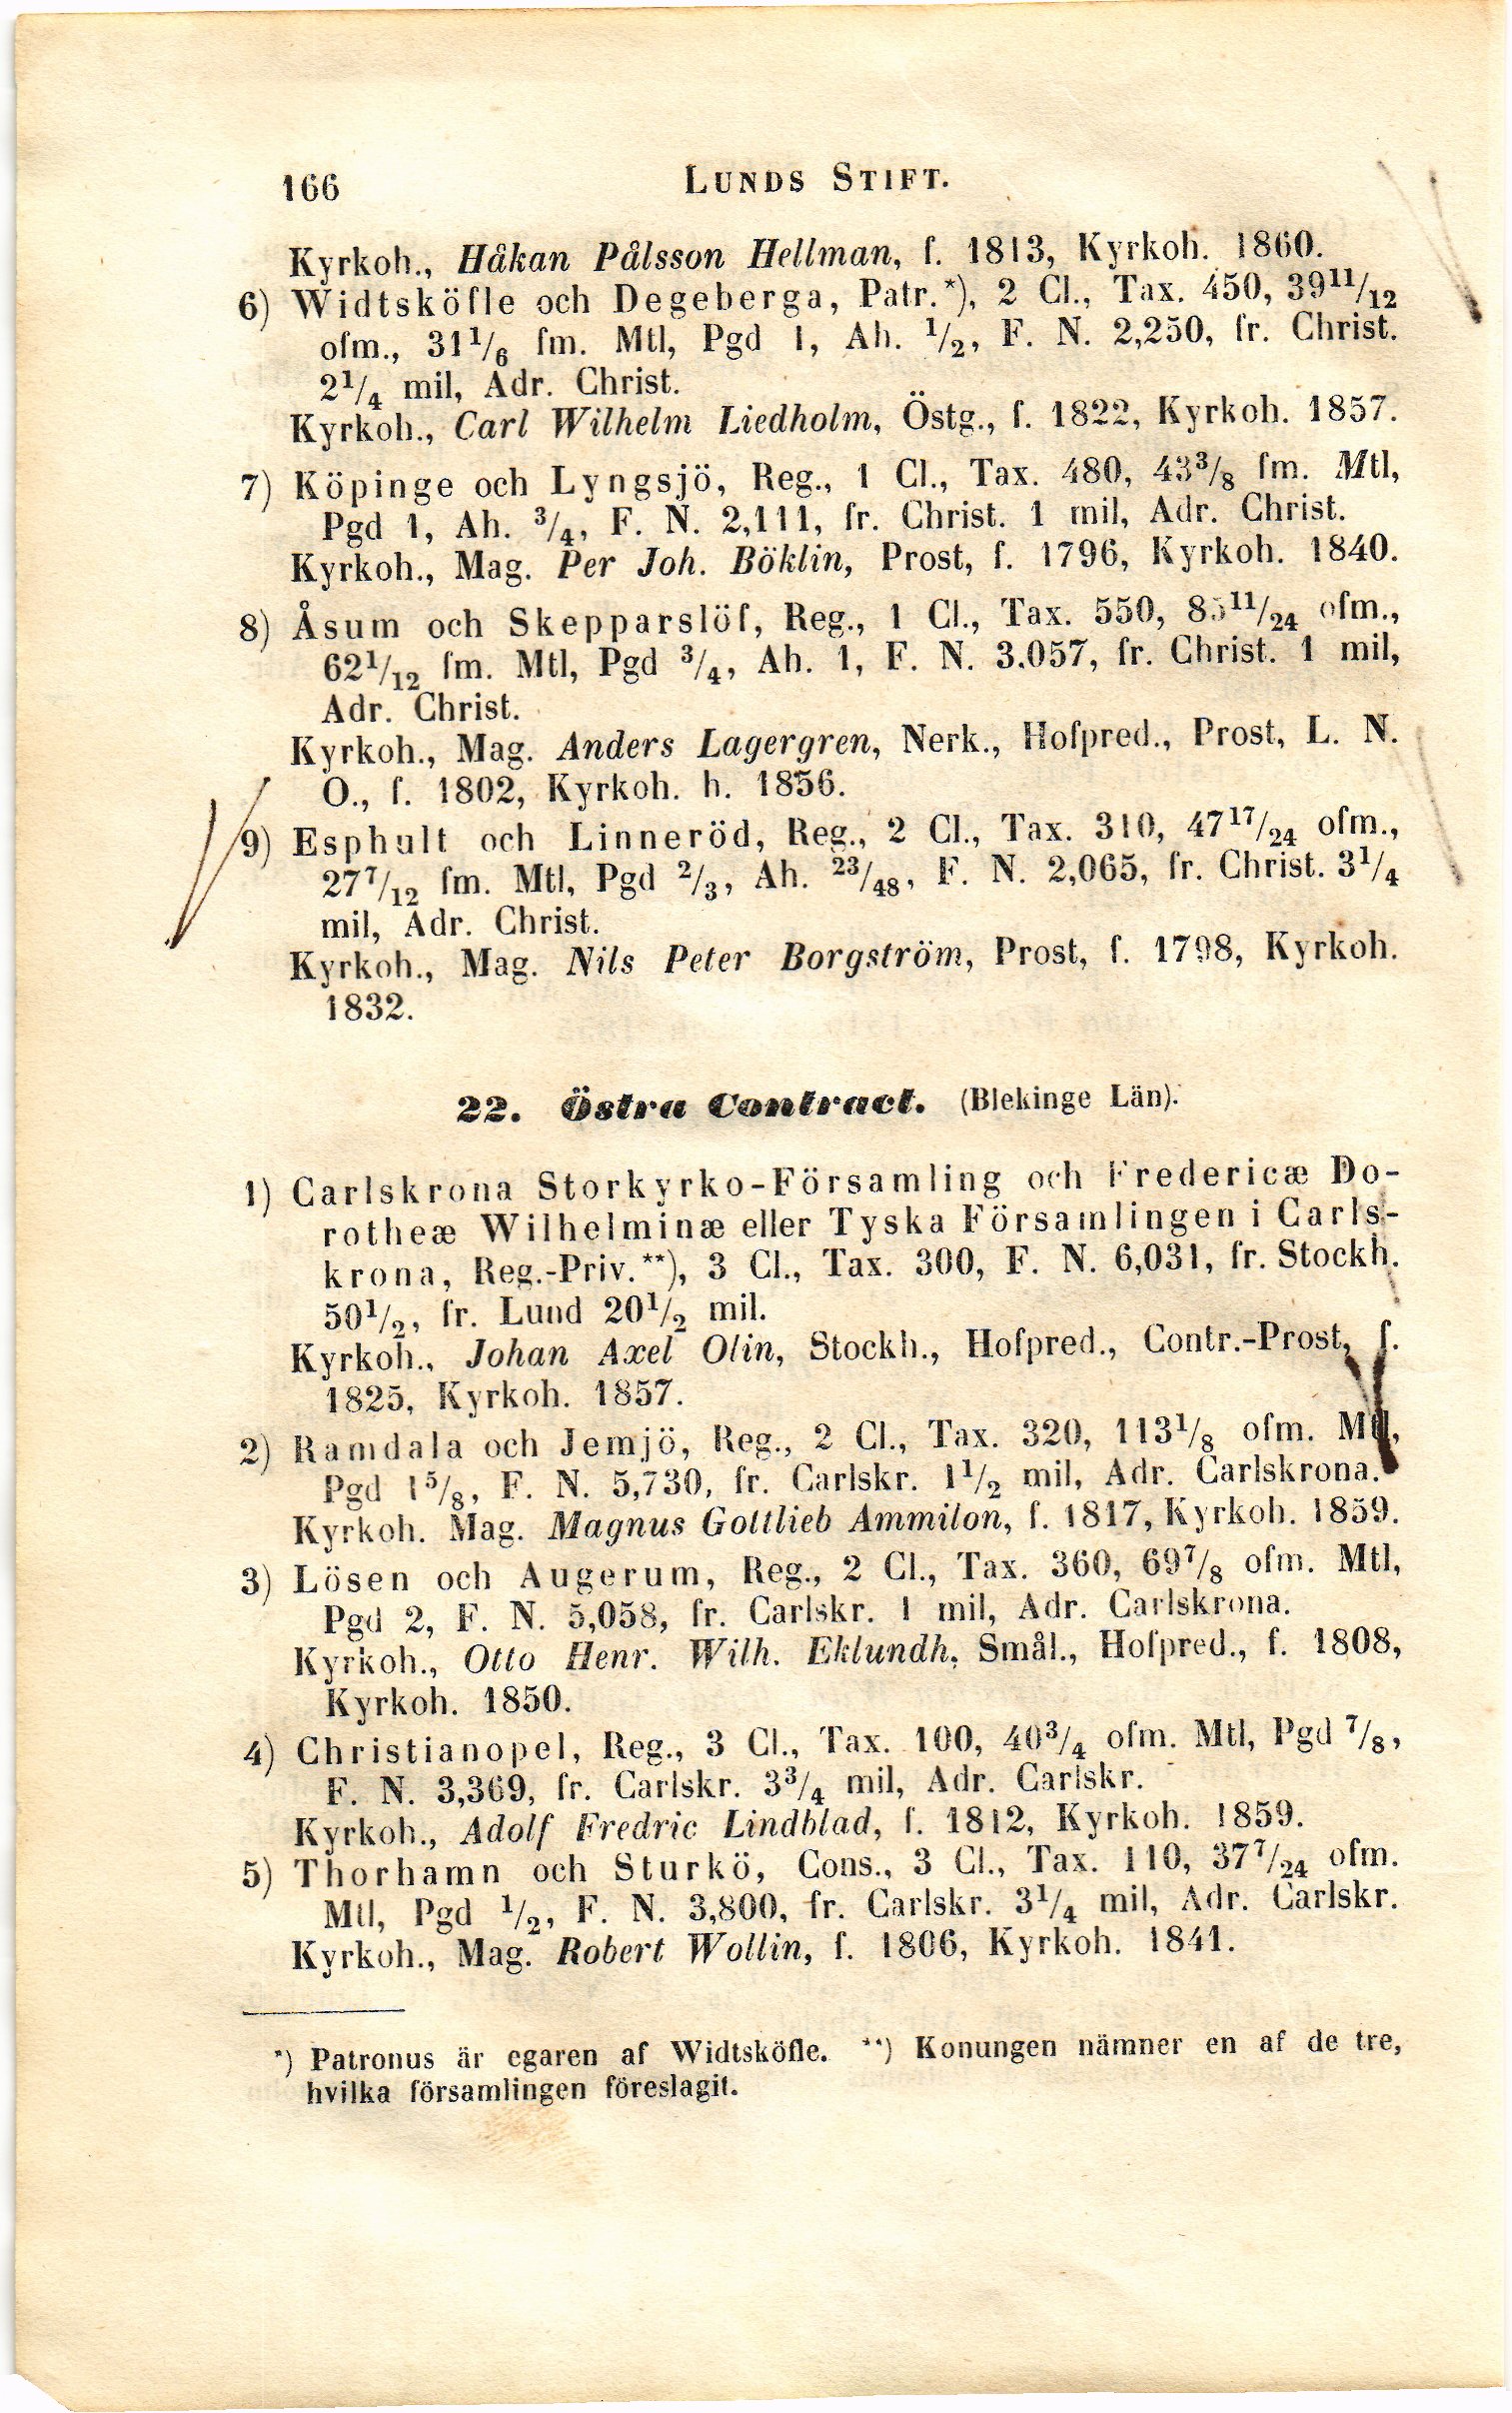 166 LUNDS STIFT.
Kyrkoh., Håkan Pålsson Hellman, f. 1813, Kyrkoh. 1860.
6) Widtsköfle och Degeberga, Patr.*), 2 Cl., Tax. 450, 39¹¹/₁₂
ofm., 31¹/₆ fm. Mtl, Pgd 1, Ah. ¹/₂, F. N. 2,250, fr. Christ.
2¹/₄ mil, Adr. Christ.
Kyrkoh., Carl Wilhelm Liedholm, Östg., f. 1822, Kyrkoh. 1857.
7) Köpinge och Lyngsjö, Reg., 1 Cl., Tax. 480, 43³/₈ fm. Mtl,
Pgd 1, Ah. ³/₄, F. N. 2,111, fr. Christ. 1 mil, Adr. Christ.
Kyrkoh., Mag. Per Joh. Böklin, Prost, f. 1796, Kyrkoh. 1840.
8) Åsum och Skepparslöf, Reg., 1 Cl., Tax. 550, 85¹¹/₂₄ ofm.,
62¹/₁₂ fm. Mtl, Pgd ³/₄, Ah. 1, F. N. 3.057, fr. Christ. 1 mil,
Adr. Christ.
Kyrkoh., Mag. Anders Lagergren, Nerk., Hofpred., Prost, L. N.
O., f. 1802, Kyrkoh. h. 1856.
9) Esphult och Linneröd, Reg., 2 Cl., Tax. 310, 47¹⁷/₂₄ ofm.,
27⁷/₁₂ fm. Mtl, Pgd ²/₃, Ah. ²³/₄₈, F. N. 2,065, fr. Christ. 3¹/₄
mil, Adr. Christ.
Kyrkoh., Mag. Nils Peter Borgström, Prost, f. 1798, Kyrkoh.
1832.
22. Östra Contract. (Blekinge Län).
1) Carlskrona Storkyrko-Församling och Fredericæ Do-
rotheæ Wilhelminæ eller Tyska Församlingen i Carls-
krona, Reg.-Priv.**), 3 Cl., Tax. 300, F. N. 6,031, fr. Stockh.
50¹/₂, fr. Lund 20¹/₂ mil.
Kyrkoh., Johan Axel Olin, Stockh., Hofpred., Contr.-Prost, f.
1825, Kyrkoh. 1857.
2) Ramdala och Jemjö, Reg., 2 Cl., Tax. 320, 113¹/₈ ofm. Mtl,
Pgd 1⁵/₈, F. N. 5,730, fr. Carlskr. 1¹/₂ mil, Adr. Carlskrona.
Kyrkoh. Mag. Magnus Gottlieb Ammilon, f. 1817, Kyrkoh. 1859.
3) Lösen och Augerum, Reg., 2 Cl., Tax. 360, 69⁷/₈ ofm. Mtl,
Pgd 2, F. N. 5,058, fr. Carlskr. 1 mil, Adr. Carlskrona.
Kyrkoh., Otto Henr. Wilh. Eklundh, Smål., Hofpred., f. 1808,
Kyrkoh. 1850.
4) Christianopel, Reg., 3 Cl., Tax. 100, 40³/₄ ofm. Mtl, Pgd ⁷/₈,
F. N. 3,369, fr. Carlskr. 3³/₄ mil, Adr. Carlskr.
Kyrkoh., Adolf Fredric Lindblad, f. 1812, Kyrkoh. 1859.
5) Thorhamn och Sturkö, Cons., 3 Cl., Tax. 110, 37⁷/₂₄ ofm.
Mtl, Pgd ¹/₂, F. N. 3,800, fr. Carlskr. 3¹/₄ mil, Adr. Carlskr.
Kyrkoh., Mag. Robert Wollin, f. 1806, Kyrkoh. 1841.
*) Patronus är egaren af Widtsköfle. **) Konungen nämner en af de tre,
hvilka församlingen föreslagit.